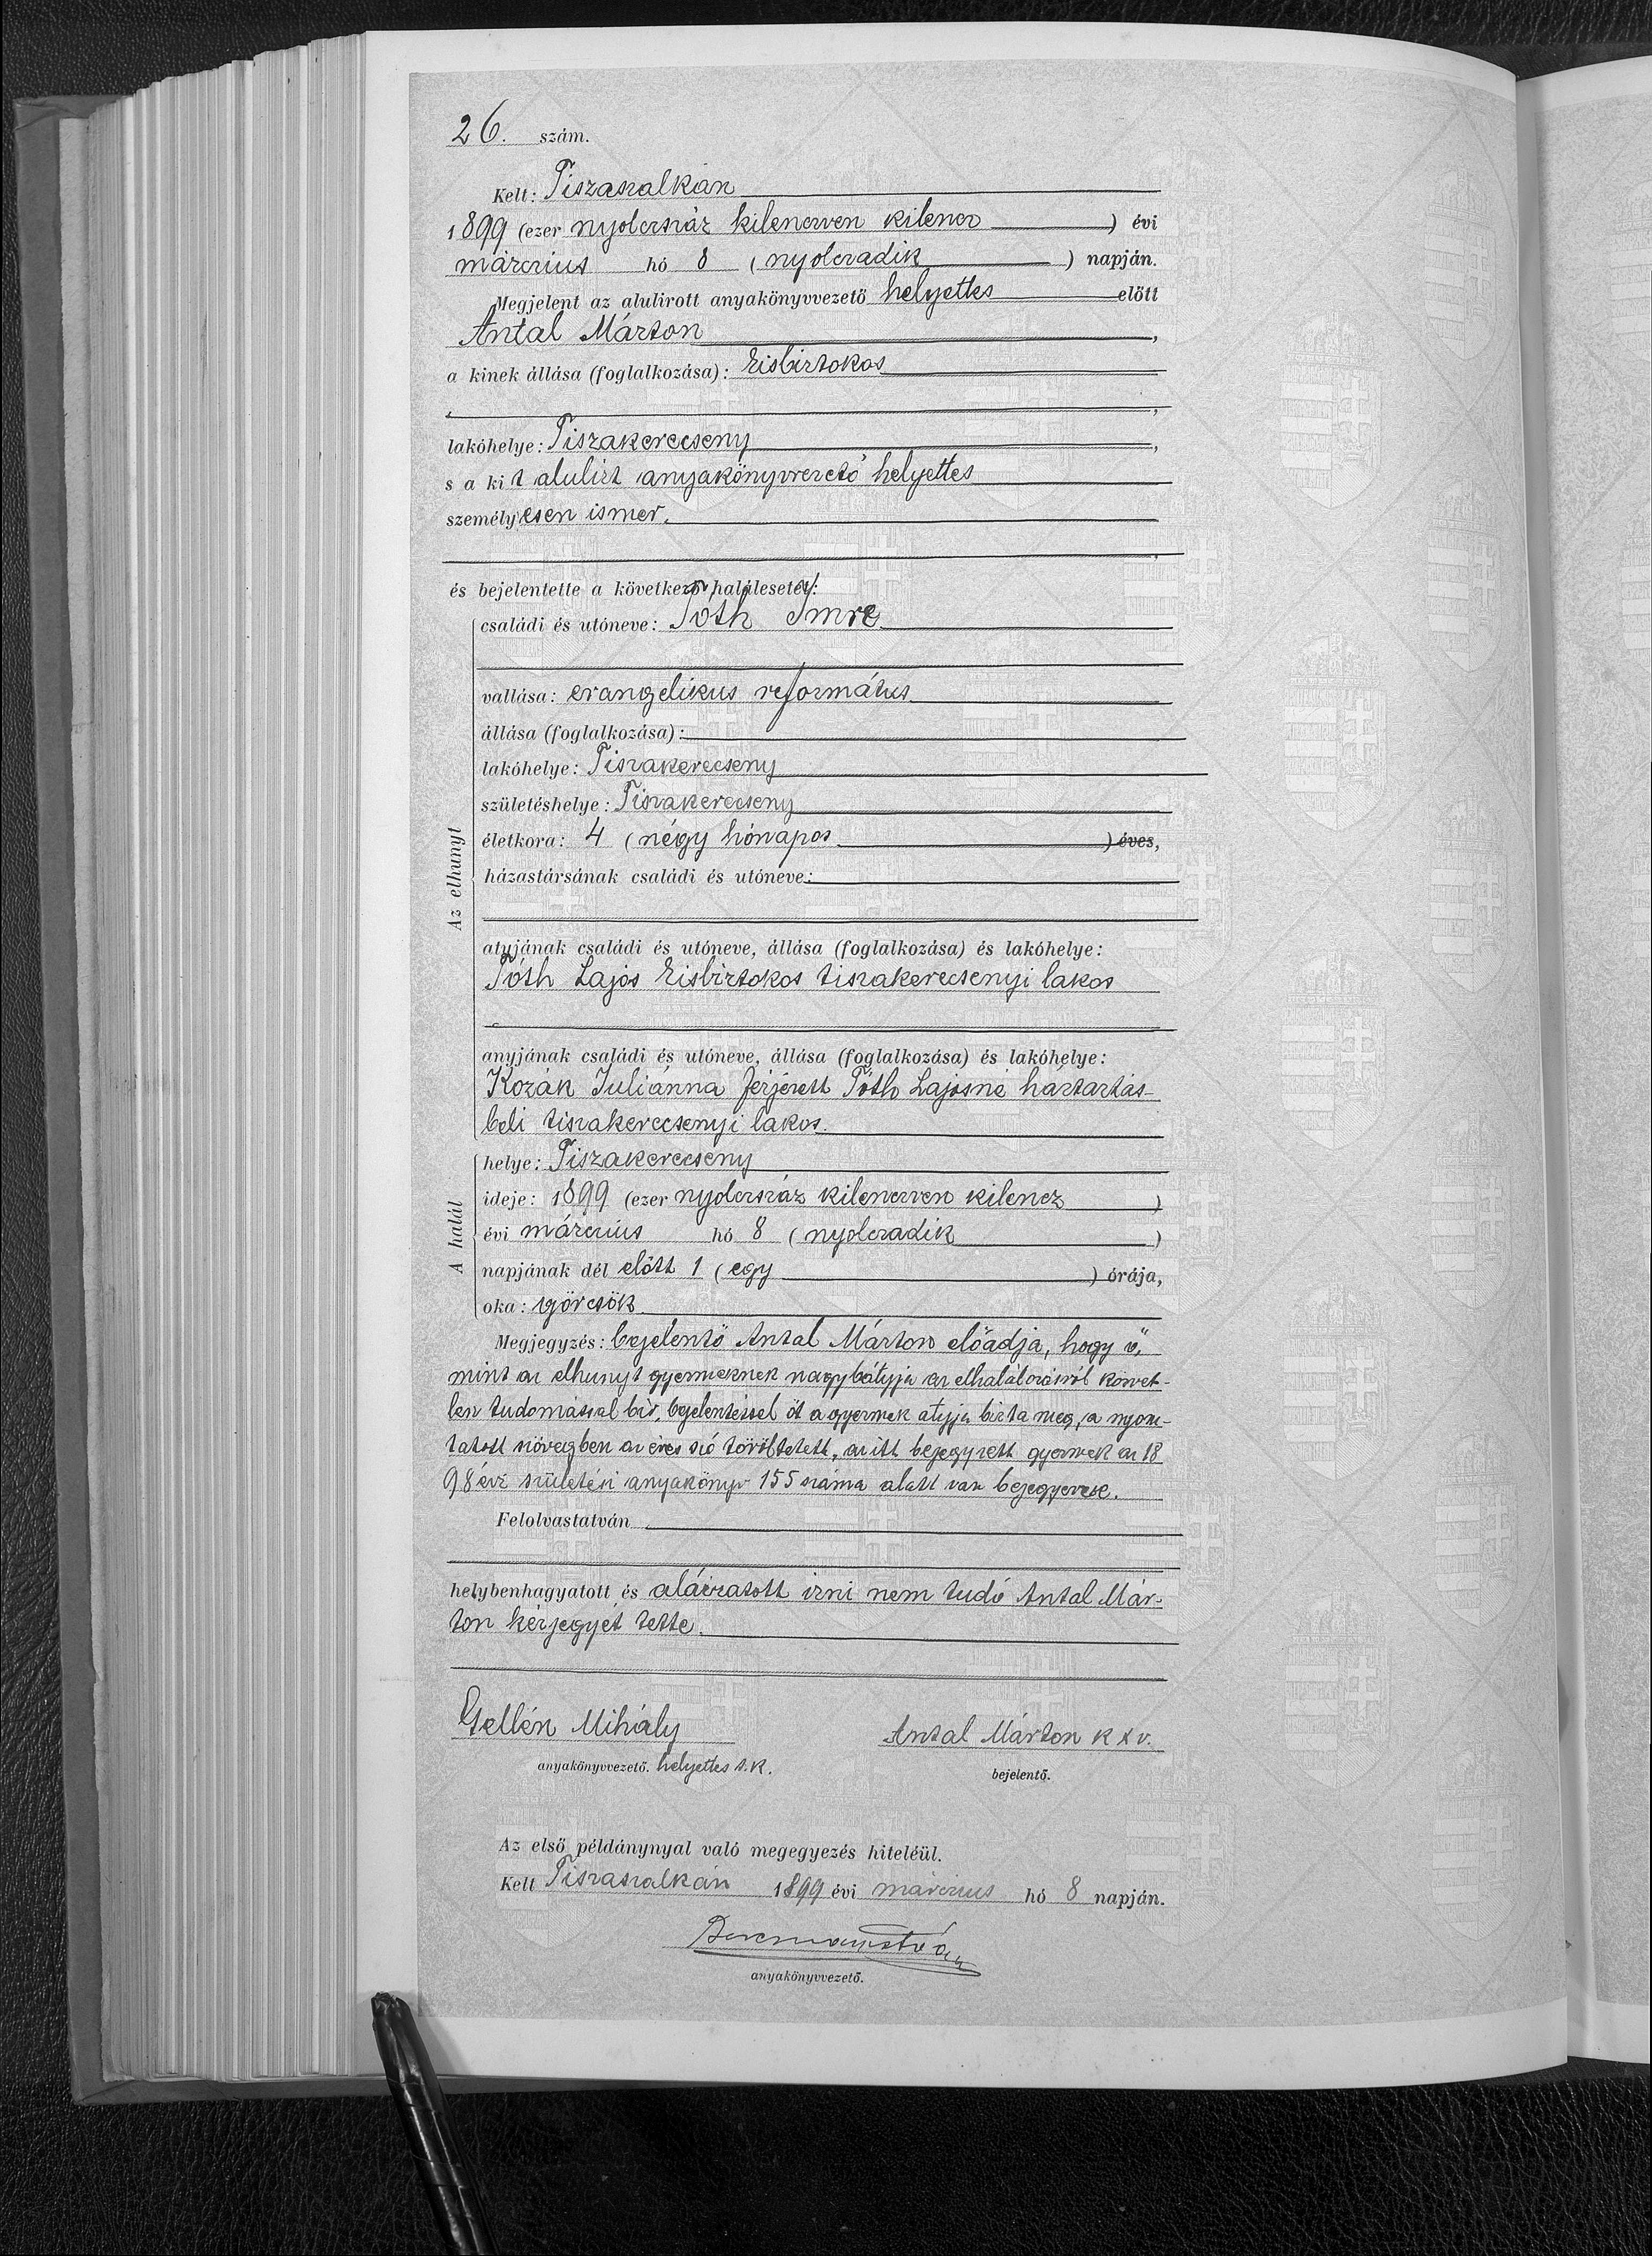 26. szám.
Kelt: Tiszaszalkán
1899 (ezer nyolczszáz kilenczven kilencz) évi
márczius hó 8 (nyolczadik) napján.
Megjelent az alulirott anyakönyvvezető helyettes előtt
Antal Márton,
a kinek állása (foglalkozása): kisbirtokos
,
lakóhelye: Tiszakerecseny,
s a kit alulirt anyakönyvvezető helyettes
személyesen ismer.
és bejelentette a következő halálesetet:
családi és utóneve: Tóth Imre
vallása: evangelikus református
állása (foglalkozása):
lakóhelye: Tiszakerecseny
születéshelye: Tiszakerecseny
életkora: 4 (négy hónapos) éves,
házastársának családi és utóneve:
Az elhunyt
atyjának családi és utóneve, állása (foglalkozása) és lakóhelye:
Tóth Lajos kisbirtokos tiszakerecsenyi lakos
anyjának családi és utóneve, állása (foglalkozása) és lakóhelye:
Kozák Juliánna férjezett Tóth Lajosné háztartás-
beli tiszakerecsenyi lakos.
A halál
helye: Tiszakerecseny
ideje: 1899 (ezer nyolczszáz kilenczven kilencz)
évi márczius hó 8 (nyolczadik)
napjának dél előtt 1 (egy) órája,
oka: görcsök
Megjegyzés: bejelentő Antal Márton előadja, hogy ő,
mint az elhunyt gyermeknek nagybátyja az elhalálozásról közvet-
len tudomással bir, bejelentéssel őt a gyermek atyja bizta meg, a nyom-
tatott szövegben az éves szó töröltetett, az itt bejegyzett gyermek az 18
98 évi születési anyakönyv 155 száma alatt van bejegyezve.
Felolvastatván
helybenhagyatott és aláiratott irni nem tudó Antal Már-
ton kézjegyét tette.
Gellén Mihály
anyakönyvvezető. helyettes s.k.
Antal Márton k x v.
bejelentő.
Az első példánynyal való megegyezés hiteléül.
Kelt Tiszaszalkán 1899 évi márczius hó 8 napján.
anyakönyvvezető.